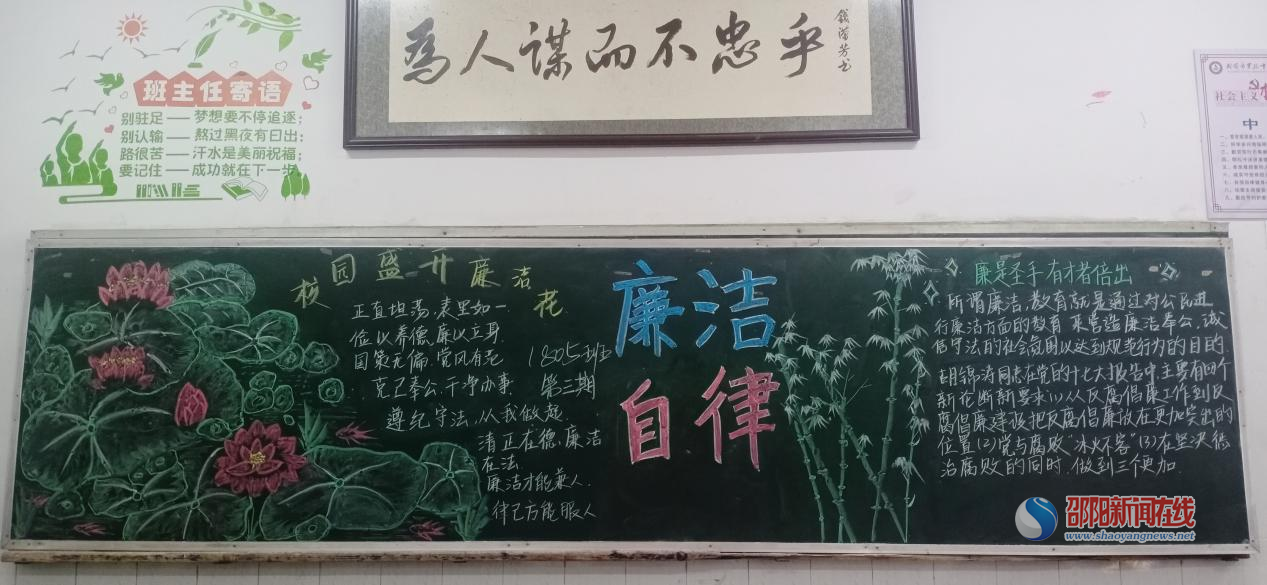 為人谋而不忠乎
班主任寄语
别驻足——梦想要不停追逐；
别认输——熬过黑夜有日出；
路很苦——汗水是美丽祝福；
要记住——成功就在下一步。
社会主义
中
校园盛开廉洁花
正直坦荡,表里如一
俭以养德,廉以立身
国策无偏,党风有范
克己奉公,干净办事
遵纪守法,从我做起
清正在德,廉洁
在法.
廉洁才能兼人.
律己方能服人
1805班
第三期
廉洁
自律
廉是圣手 有才者倍出
所谓廉洁教育就是通过对公民进
行廉洁方面的教育 来营造廉洁奉公,诚
信守法的社会氛围以达到规范行为的目的
胡锦涛同志在党的十七大报告中主要有四个
新论断新要求:(1)从反腐倡廉工作到反
腐倡廉建设,把反腐倡廉放在更加突出的
位置(2)党与腐败"水火不容"(3)在坚决惩
治腐败的同时.做到三个更加.
邵阳新闻在线
www.shaoyangnews.net